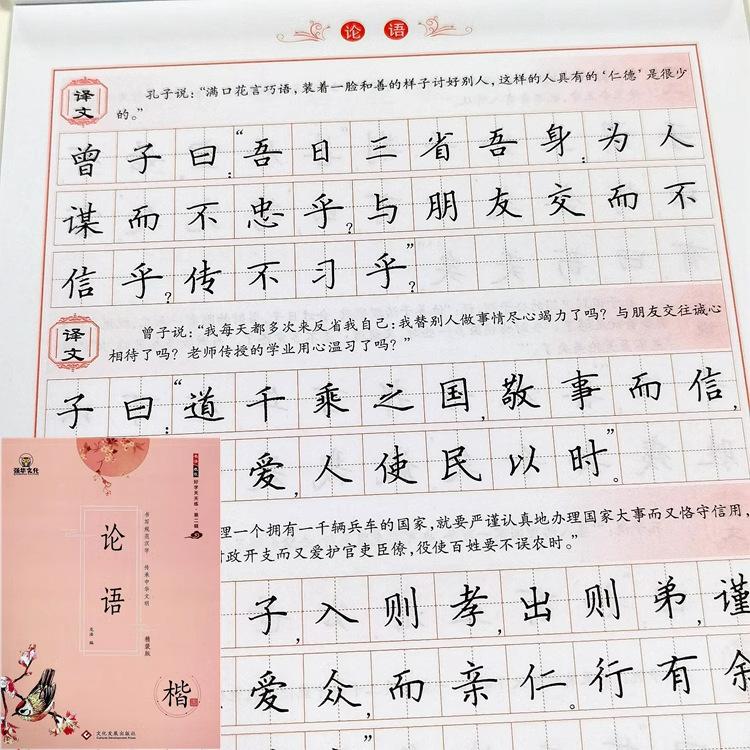 论语
译文
孔子说：“满口花言巧语，装着一脸和善的样子讨好别人，这样的人具有的‘仁德’是很少
的。”
曾子曰：“吾日三省吾身：为人
谋而不忠乎？与朋友交而不
信乎？传不习乎？”
译文
曾子说：“我每天都多次来反省我自己：我替别人做事情尽心竭力了吗？与朋友交往诚心
相待了吗？老师传授的学业用心温习了吗？”
子曰：“道千乘之国，敬事而信，
爱人，使民以时。”
理一个拥有一千辆兵车的国家，就要严谨认真地办理国家大事而又恪守信用，
财政开支而又爱护官吏臣僚，役使百姓要不误农时。”
子，入则孝，出则弟，谨
爱众，而亲仁。行有余
强华文化
好字天天练·第二辑
书写规范汉字 传承中华文明
论语
精装版
楷
文化发展出版社
Cultural Development Press